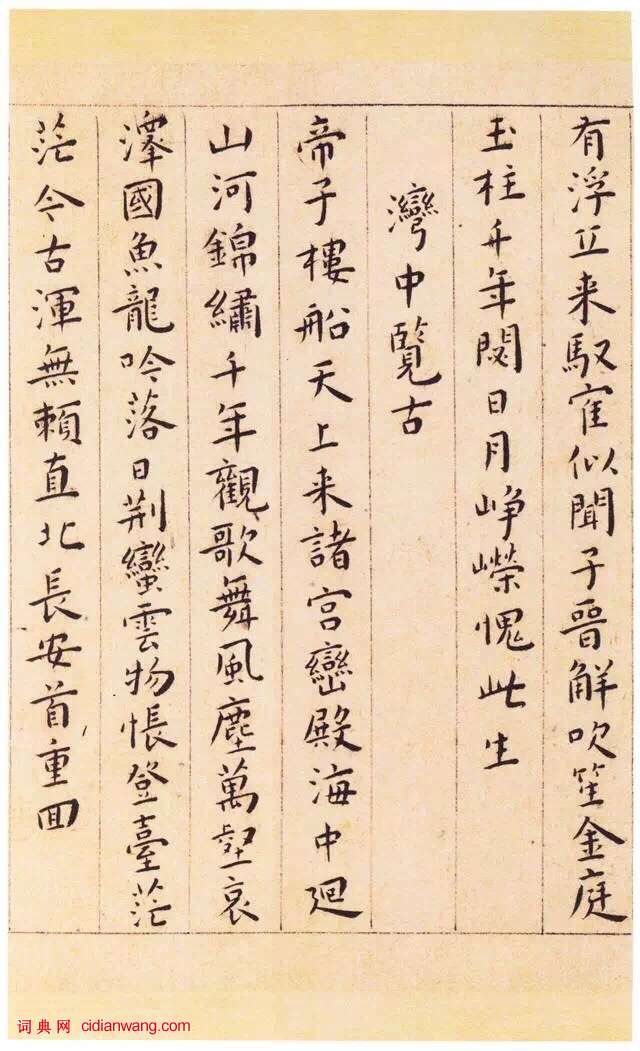 有浮丘来馭寉似聞子晉解吹笙金庭
玉柱千年閱日月崢嶸愧此生
灣中覽古
帝子樓船天上来諸宮巒殿海中廻
山河錦繡千年觀歌舞風塵萬壑哀
澤國魚龍吟落日荆蠻雲物悵登臺茫
茫今古渾無賴直北長安首重回
词典网 cidianwang.com